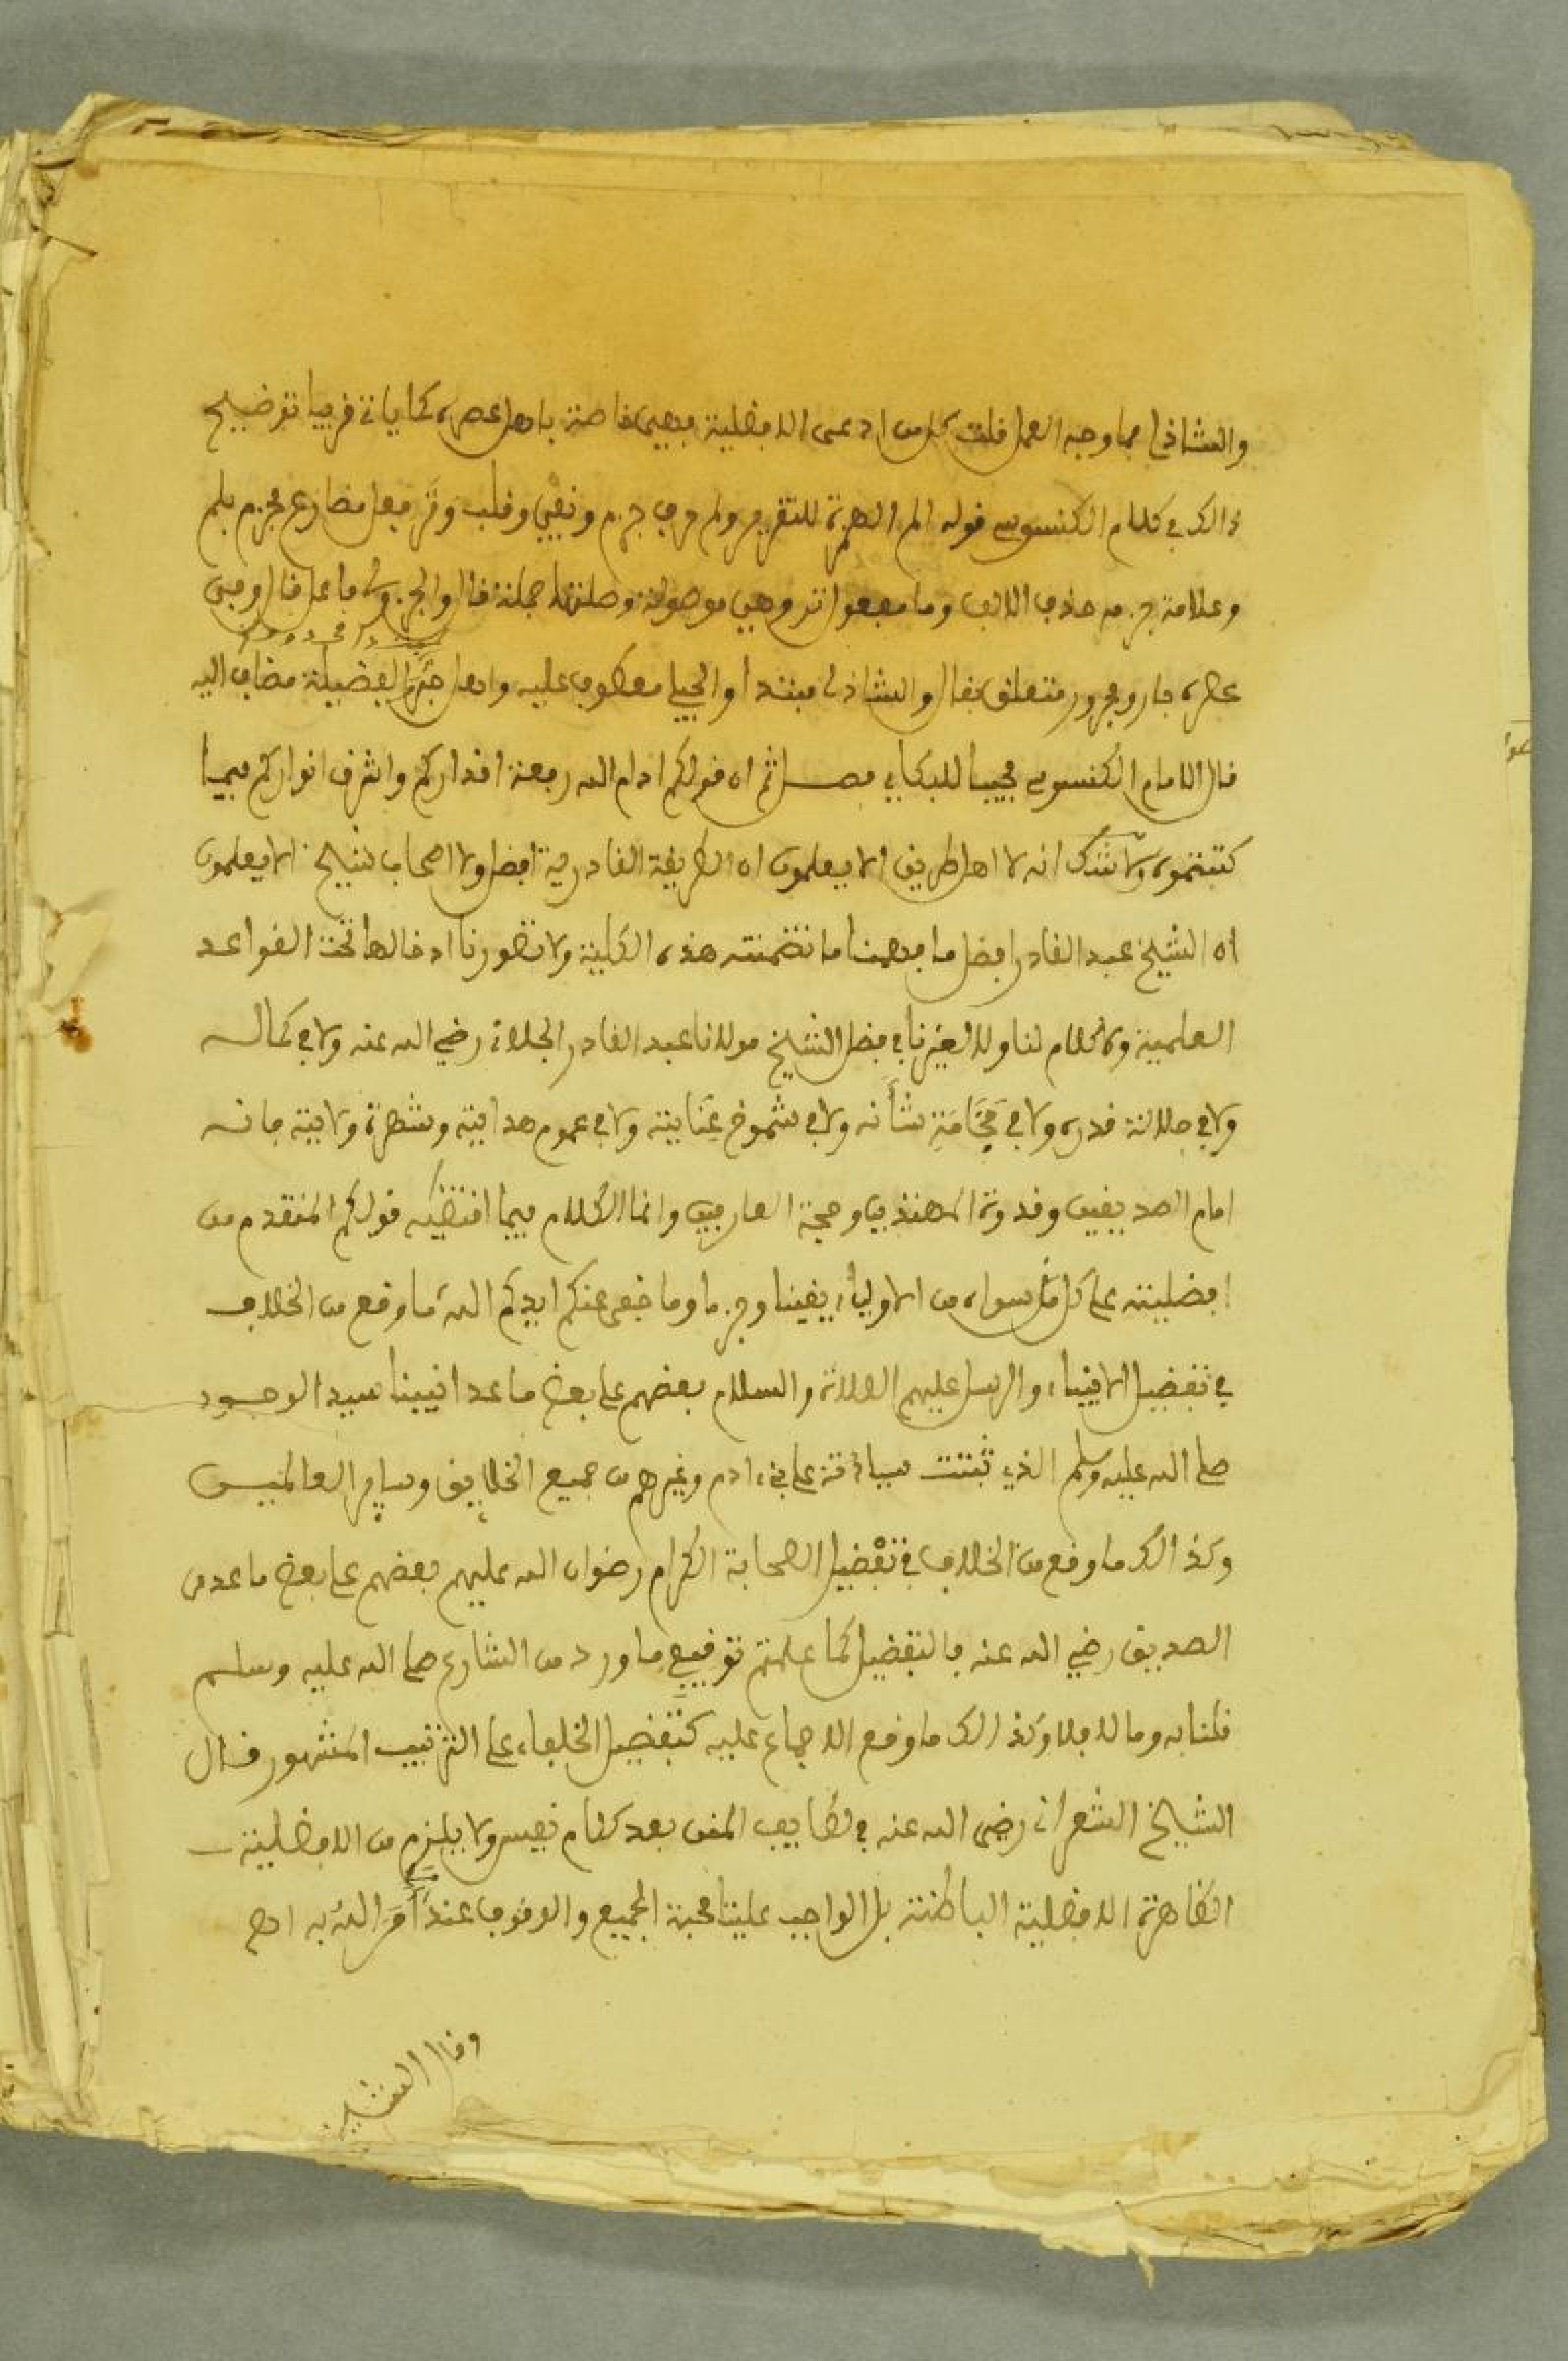 والشاذلي فما وجه العمل قلت كل من ادعى الافضلية فهي خاصة باهل عصره كما ياتي قريبا توضيح
ذالك في كلام الكنسوسي قوله الم الهمزة للتقرير ولم حرف جزم ونفي وقلب وتر فعل مضارع مجزم بلم
وعلامة جزمه حذف الالف وما مفعول تر وهي موصولة وصلتها جملة قال والجزولي فاعل قال وفي
عصره جار ومجرور متعلق بقال والشاذلي مبتدأ والجيلي معطوف عليه واهل خبر الفضيلة مضاف اليه
قال الامام الكنسوسي مجيبا للبكاي فصل ثم ان قولكم ادام الله رفعة اقداركم واشرف انواركم فيما
كتبتموه ولا شك انه لا اهل طريق الا يعلمون ان الطريقة القادرية افضل ولا اصحاب شيخ الا يعلمون
ان الشيخ عبد القادر افضل ما فهمنا ما تضمنته هذه الكلية ولا تصورنا ادخالها تحت القواعد
العلمية ولا كلام لنا ولا لغيرنا في فضل الشيخ مولانا عبد القادر الجلاني رضي الله عنه ولا في كماله
ولا في جلالة قدره ولا في فَخَامَةِ شأنه ولا في شموخ عِنَايته ولا في عموم هدايته وشهرة ولايته فانه
امام الصديقين وقدوة المهتدين وحجة العارفين وانما الكلام فيما اقتضيه قولكم المتقدم من
افضليته على كل من سواه من الاولياء يقينا وجزما وما خفي عنكم ايدكم الله ما وقع من الخلاف
في تفضيل الانبياء والرسل عليهم الصلاة والسلام بعضهم على بعض ما عدا نبينا سيد الوجود
صلى الله عليه وسلم الذي ثبتت سيادته على بني ادم وغيرهم من جميع الخلايق وساير العالمين
وكذالك ما وقع من الخلاف في تفضيل الصحابة الكرام رضوان الله عليهم بعضهم على بعض ما عدى
الصديق رضي الله عنه فالتفضيل كما علمتم توقيفي ما ورد من الشارع صلى الله عليه وسلم
قلنا به وما لا فلا وكذالك ما وقع الاجماع عليه كتفضيل الخلفاء على الترتيب المشهور قال
الشيخ الشعراني رضي الله عنه في لطايف المنن بعد كلام نفيس ولا يلزم من الافضلية
الظاهرة الافضلية الباطنة بل الواجب علينا محبة الجميع والوقوف عند ما أمر الله به اهـ